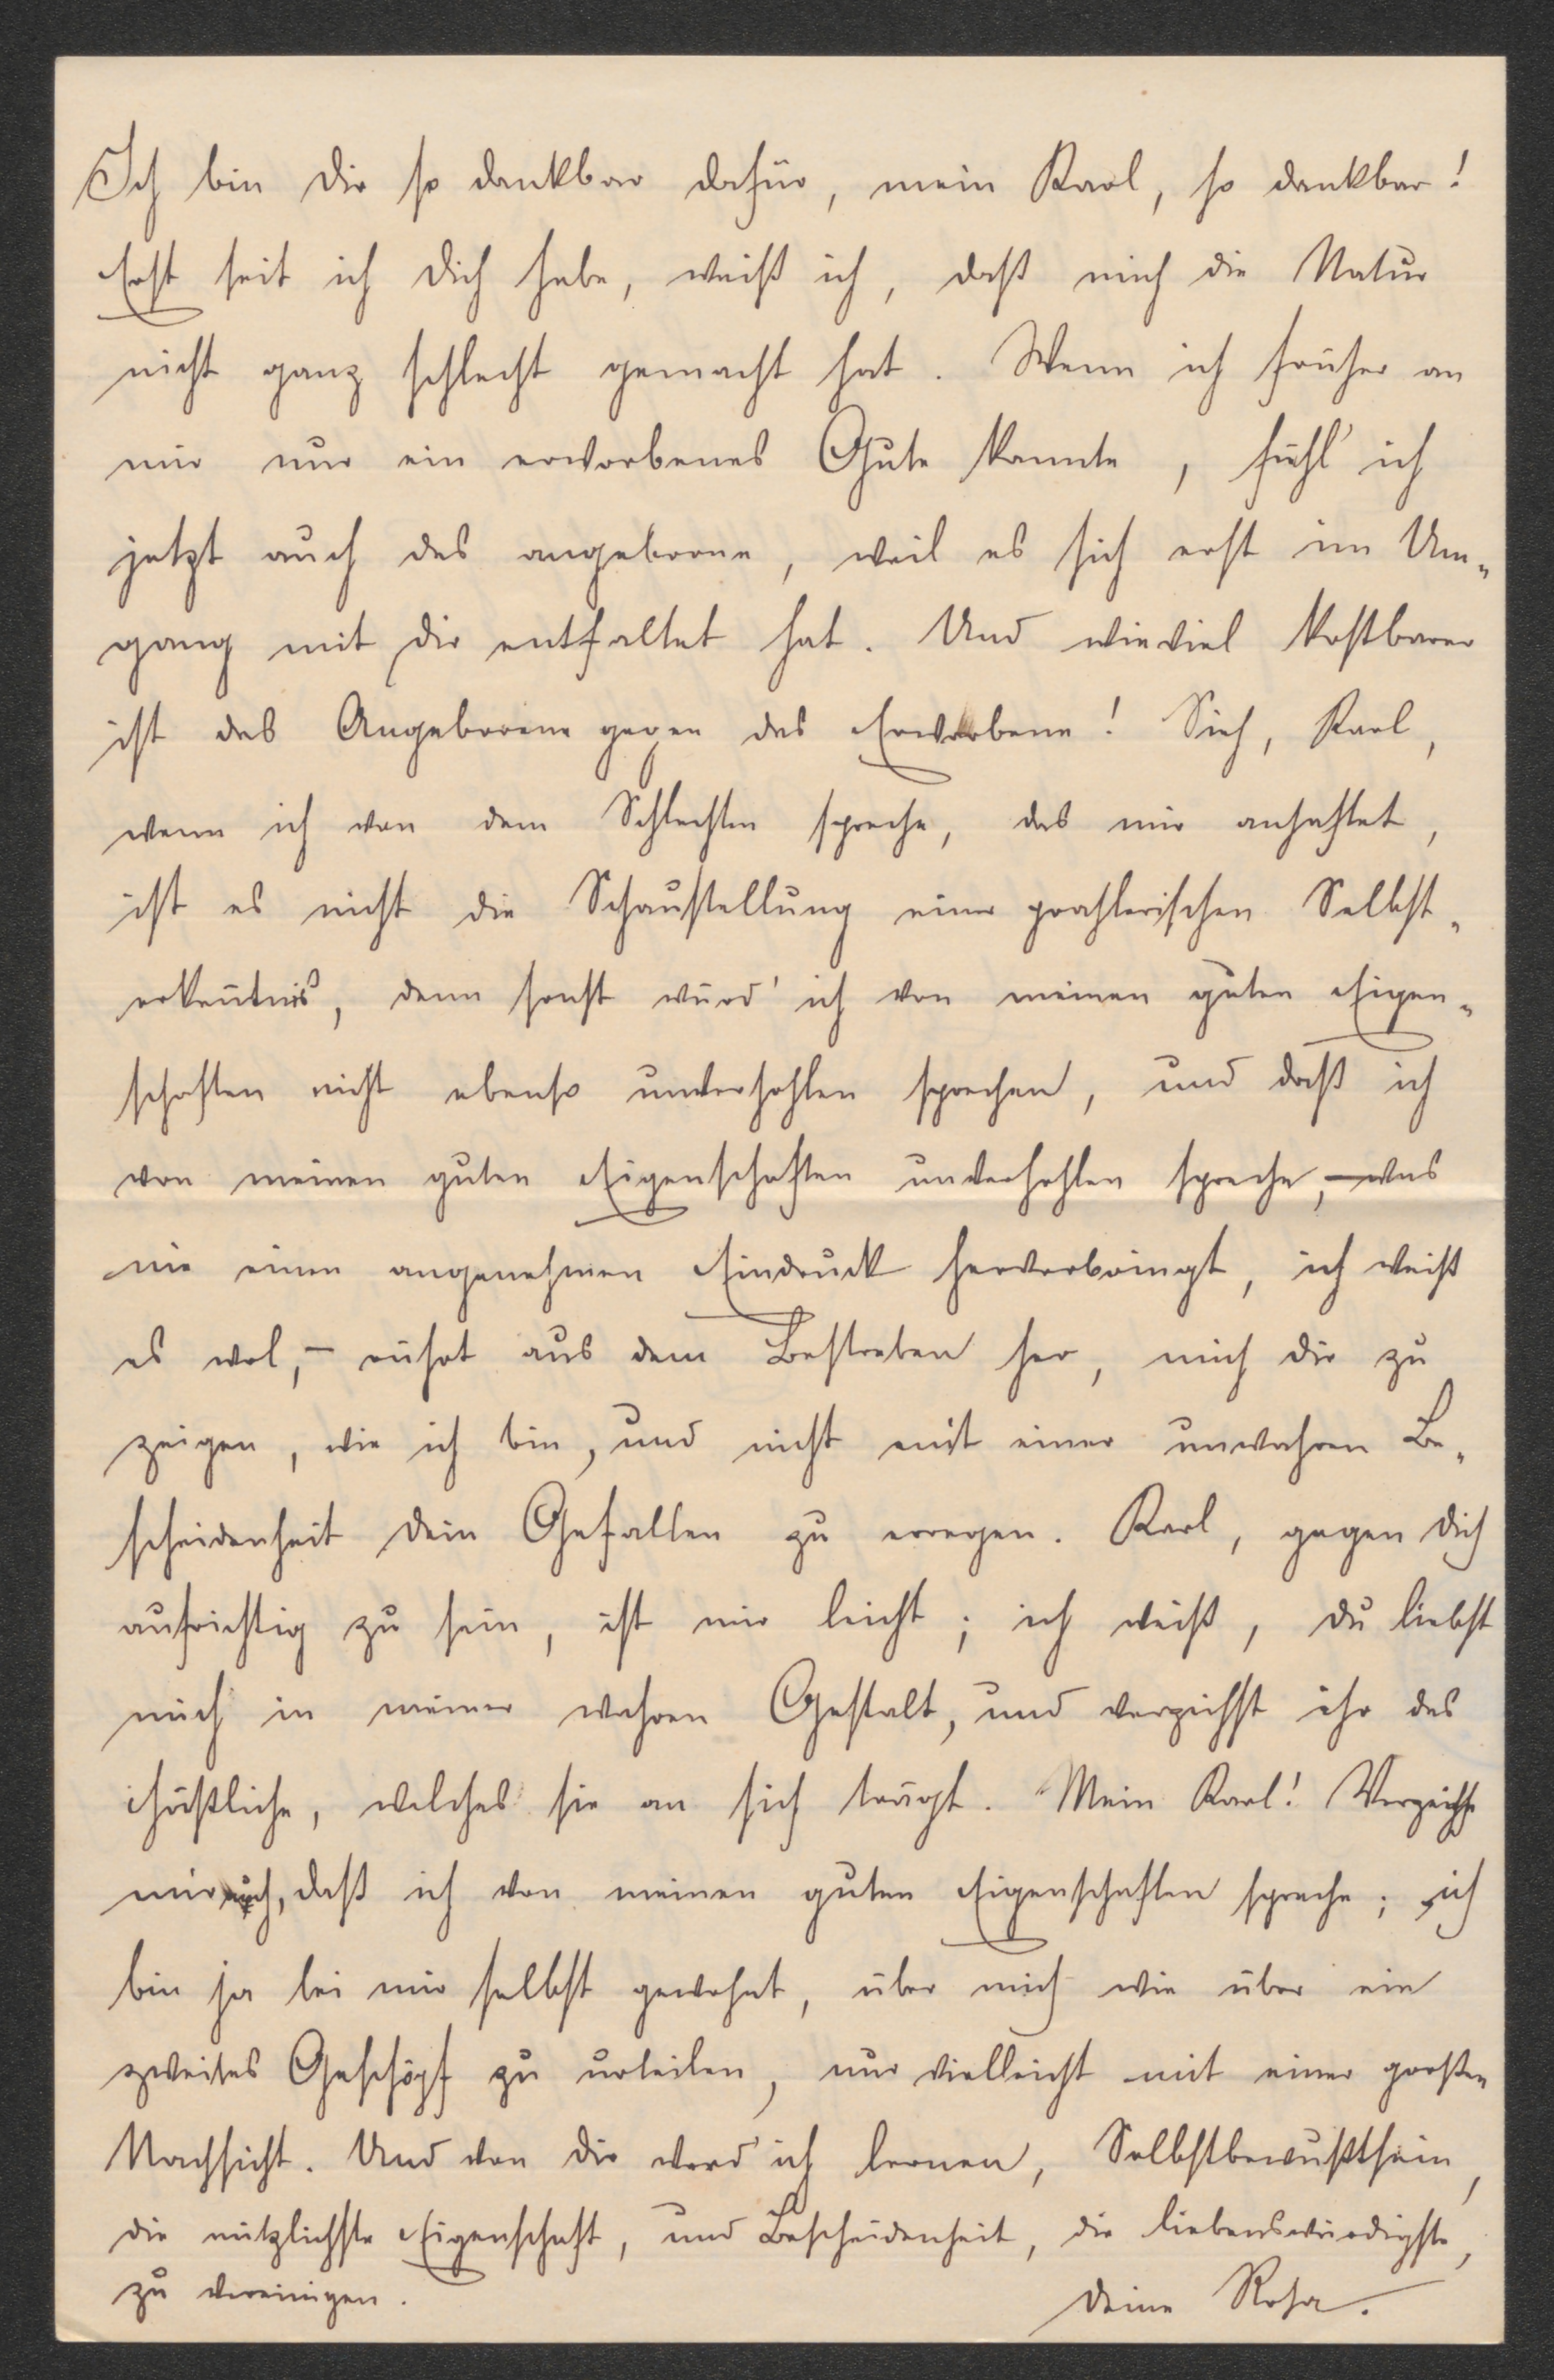 Ich bin Dir so dankbar dafür, mein Karl, so dankbar!
Erst seit ich Dich habe, weiß ich, daß mich die Natur
nicht ganz schlecht gemacht hat. Wenn ich früher an
mir nur ein erworbenes Gute kannte, fühl' ich
jetzt auch das angeborne, weil es sich erst im Um-
gang mit Dir entfaltet hat. Und wieviel kostbarer
ist das Angeborene gegen das Erworbene! Sieh, Karl,
wenn ich von dem Schlechten spreche, das mir anhaftet,
ist es nicht die Schaustellung einer prahlerischen Selbst-
erkentnis, denn sonst würd' ich von meinen guten Eigen-
schaften nicht ebenso unverhohlen sprechen, und daß ich
von meinen guten Eigenschaften unverhohlen spreche, – was
nie einen angenehmen Eindruck hervorbringt, ich weiß
es wol, – rührt aus dem Bestreben her, mich Dir zu
zeigen, wie ich bin, und nicht mit einer unwahren Be-
scheidenheit Dein Gefallen zu erregen. Karl, gegen Dich
aufrichtig zu sein, ist mir leicht; ich weiß, Du liebst
mich in meiner wahren Gestalt, und verzeihst ihr das
häßliche, welches sie an sich trägt. Mein Karl! Verzeihe
mir auch, daß ich von meinen guten Eigenschaften spreche; ich
bin ja bei mir selbst gewohnt, über mich wie über ein
zweites Geschöpf zu urteilen, nur vielleicht mit einer großen
Nachsicht. Und von Dir werd' ich lernen, Selbstbewußtsein,
die nützlichste Eigenschaft, und Bescheidenheit, die liebenswürdigste,
zu vereinigen.
Deine Rosa.